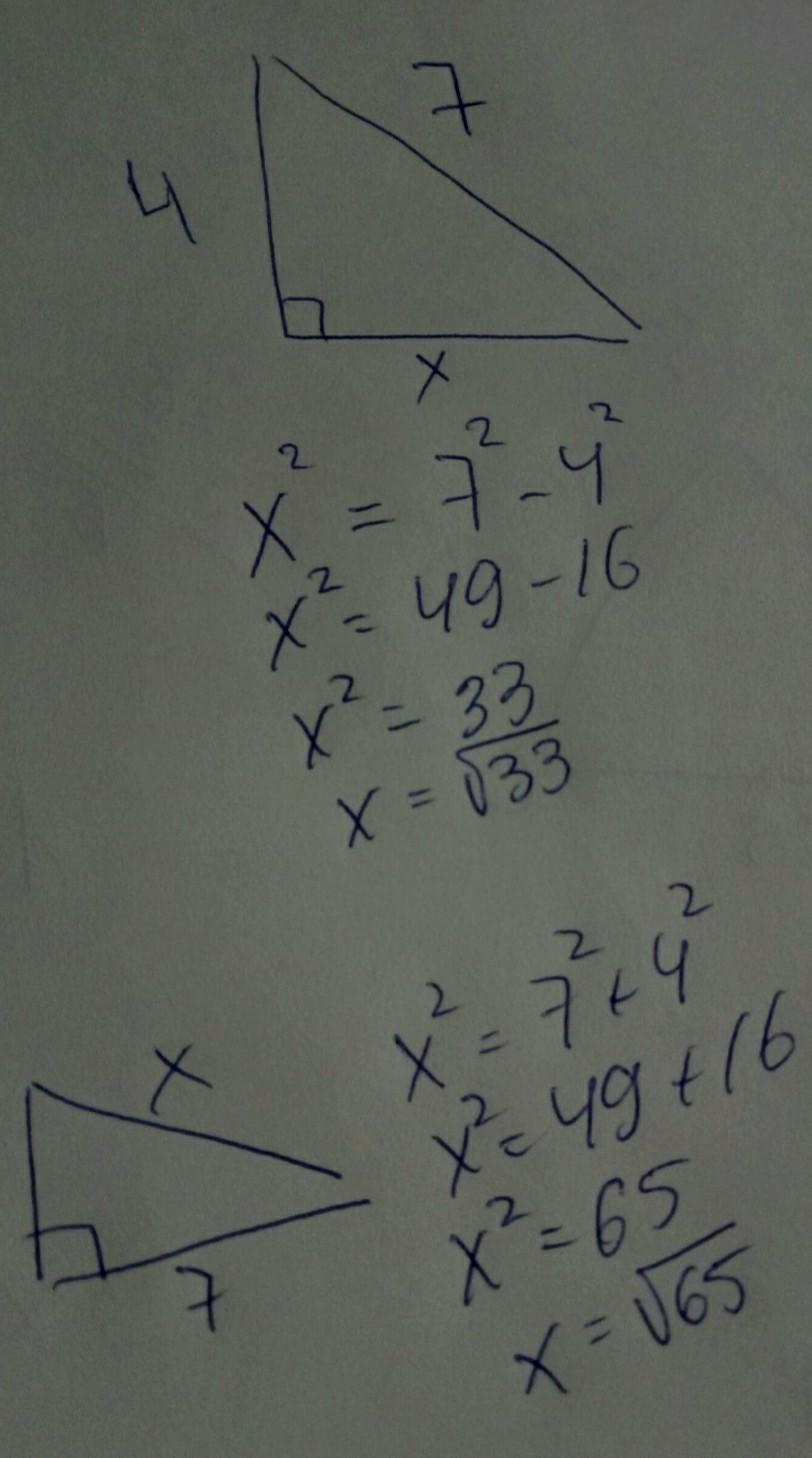 7
4
x
x² = 7² - 4²
x² = 49 - 16
x² = 33
x = √33
x² = 7² + 4²
x
x² = 49 + 16
x² = 65
7
x = √65